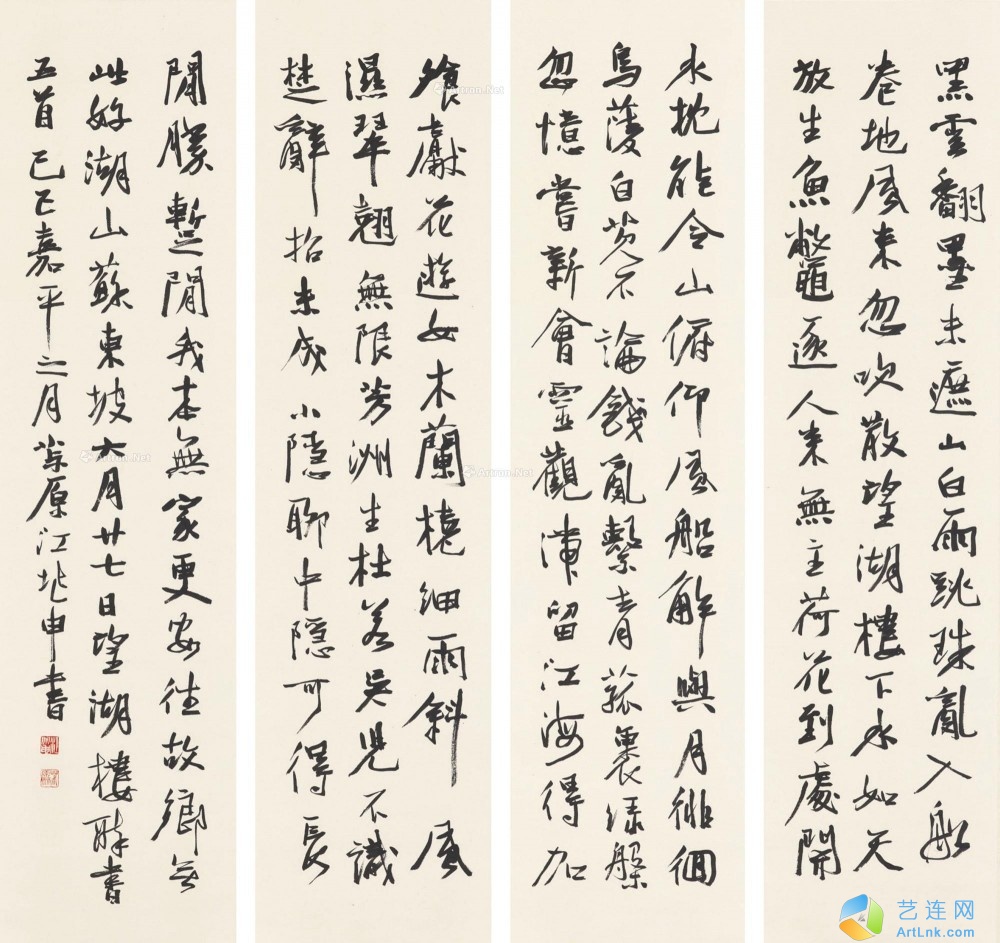 黑雲翻墨未遮山白雨跳珠亂入船
卷地風來忽吹散望湖樓下水如天
放生魚鱉逐人來無主荷花到處開
水枕能令山俯仰風船解與月徘徊
烏菱白芡不論錢亂繫青菰裹綠盤
忽憶嘗新會靈觀滯留江海得加
飡獻花遊女木蘭橈細雨斜風
濕翠翹無限芳洲生杜若吳兒不識
楚辭招未成小隱聊中隱可得長
閒勝暫閒我本無家更安往故鄉無
此好湖山蘇東坡六月廿七日望湖樓醉書
五首己巳嘉平之月茮原江兆申書
艺连网
ArtLnk.com